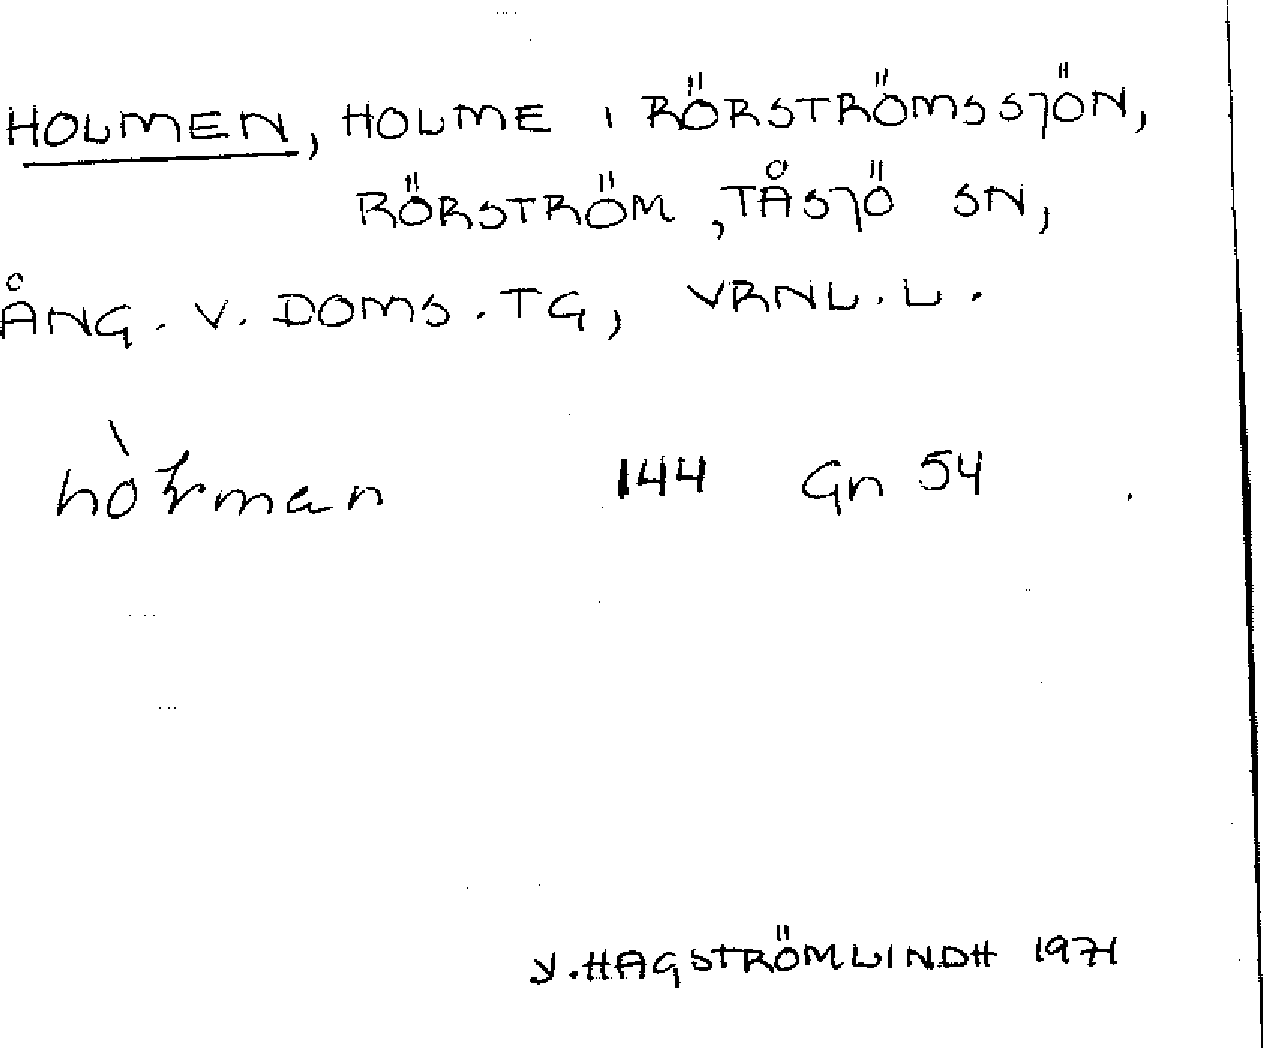 HOLMEN, HOLME I RÖRSTRÖMSSJÖN,
RÖRSTRÖM, TÅSJÖ SN,
ÅNG. V. DOMS. TG, VRNL. L.
144 Gn 54
Y. HAGSTRÖM LINDH 1971